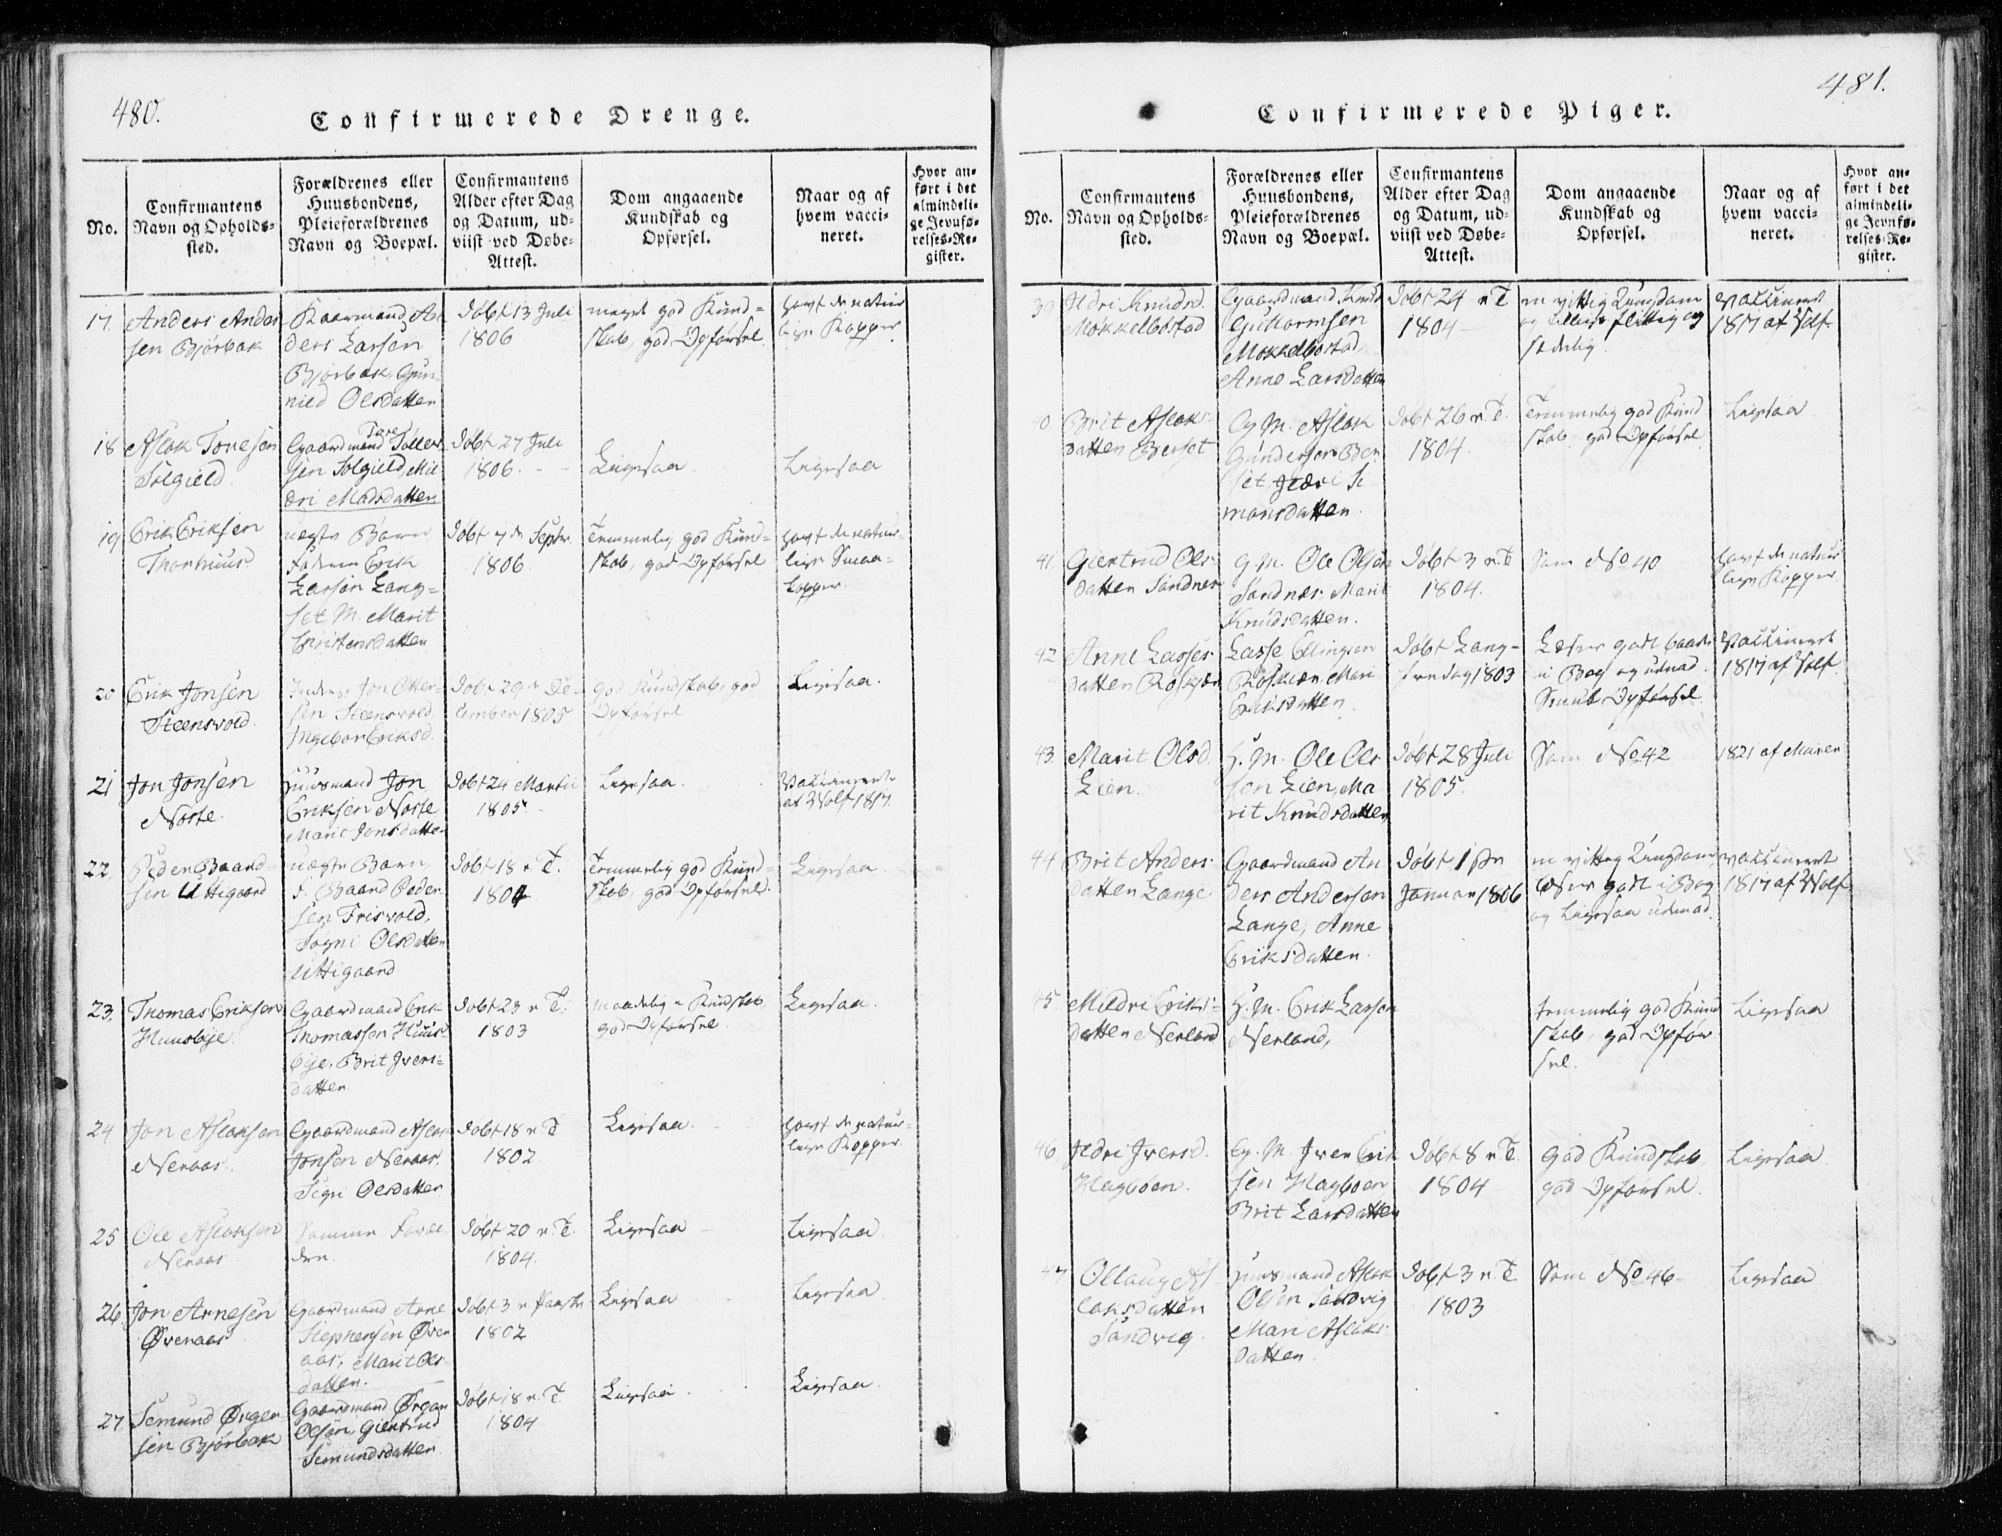 480.
Confirmerede Drenge.
No.
Confirmantens
Navn og Opholds-
sted.
Forældrenes eller
Huusbondens,
Pleieforældrenes
Navn og Boepæl.
Confirmantens
Alder efter Dag
og Datum, ud-
viist ved Døbe-
Attest.
Dom angaaende
Kundskab og
Opførsel.
Naar og af
hvem vacci-
neret.
Hvor an-
ført i det
almindeli-
ge Jevnfø-
relses-Re-
gister.
17.
Anders Ander
sen Bjørbak
Gaardmand An
ders Larsen
Bjørbak, Gun
nild Olsdatten
døbt 13 Juli
1806
meget god Kund-
skab, god Opførsel
havt de natur
lige Kopper
18
Aslak Toresen
Solgield.
Gaardmand Tore Toller
sen Solgield, Mil
dri Madsdatten
døbt 27 Juli
1806.
Ligesaa
Ligesaa
19
Erik Eriksen
Thorhuus
uægte Barn
Faderen Erik
Larsen Lang-
set, M. Marit
Christensdatten
døbt 7de Septbr
1806
Temmelig god Kund-
skab, god Opførsel
havt de natur-
lige Smaa-
kopper
20
Erik Jonsen
Steensvold.
Inderst Jon Otter-
sen Steensvold
Ingebor Eriksd.
døbt 29de De-
cember 1805
god Kundskab, god
Opførsel
Ligesaa.
21
Jon Jonsen
Noste.
Huusmand Jon
Eriksen Noste
Marit Jonsdatten
døbt 24 Martii
1805.
Ligesaa.
Vaccineret
af Wolf 1817.
22
Peder Baard-
sen Uttigaard
uægte Barn
F. Baard Peder
sen Trisvold,
Sogni Olsdatten
Uttigaard
døbt 18 e. T.
1804
Temmelig god Kund-
skab, god Opførsel
Ligesaa.
23.
Thomas Eriksen
Huusbye.
Gaardmand Erik
Thomassen Huus-
bye, Brit Ivers-
datten
døbt 23 e T.
1803
maadelig Kundskab
god Opførsel.
Ligesaa.
24
Jon Aslaksen
Neraas.
Gaardmand Aslak
Jonsen Neraas,
Sigri Olsdatten
døbt 18 e. T
1802
Ligesaa.
havt de natur-
lige Kopper.
25
Ole Aslaksen
Neraas
Samme Foræl
dre.
døbt 20 e. T.
1804.
Ligesaa
Ligesaa.
26.
Jon Arnesen
Øveraas
Gaardmand Arne
Stephensen Øver
aas, Marit Ols-
datten.
døbt 3 e Paaske
1802
Ligesaa
Ligesaa.
27
Semund Ørgen-
sen Bjørbak
Gaardmand Ørgan
Olsen, Giertrud
Semundsdatten
døbt 18 e. T
1804
Ligesaa
Ligesaa.
481.
Confirmerede Piger.
No.
Confirmantens
Navn og Opholds-
sted.
Forældrenes eller
Huusbondens,
Pleieforældrenes
Navn og Boepæl.
Confirmantens
Alder efter Dag
og Datum, ud-
viist ved Døbe-
Attest.
Dom angaaende
Kundskab og
Opførsel.
Naar og af
hvem vacci-
neret.
Hvor an-
ført i det
almindeli-
ge Jevnfø-
relses-Re-
gister.
39
Ildri Knudsd.
Mokkelbostad
Gaardmand Knud
Guttormsen
Mokkelbostad,
Anne Larsdatten
døbt 24 e T
1804
en vittig Ungdom
og tillige flittig og
sædelig.
Vaccineret
1817 af Wolf.
40.
Brit Aslaks-
datten Berset
G. M. Aslak
Gundersen Ber
set Ildri Si
monsdatten.
døbt 26 e. T.
1804.
Temmelig god Kund
skab, god Opførsel
Ligesaa
41
Giertrud Ols-
datten Sandnes
G. M. Ole Olsen
Sandnes, Marit
Knudsdatten.
døbt 3 e. T
1804.
Som No 40
havt de natur
lige Kopper
42
Anne Lasses-
datten Roskær
Lasse Ellingsen
Roskær, Mari
Eriksdatten.
døbt Lang-
fredag 1803
Læser godt baade
i Bog og udenad.
Smuk Opførsel
Vaccineret
1817 af Wolf.
43.
Marit Olsd.
Lien.
H. M. Ole Ols
sen Lien, Ma
rit Knudsdatten
døbt 28 Juli
1805.
Som No 42
1821 af Muren
44
Brit Anders-
datten Lange
Gaardmand An
ders Andersen
Lange, Anne
Eriksdatten.
døbt 1ste
Januar 1806
en vittig Ungdom
læser godt i Bog
og ligesaa udenad.
Vaccineret
1817 af Wolf
45.
Mildri Eriks-
datten Nerland
H. M. Erik Larsen
Nerland,
temmelig god Kund
skab, god Opfør
sel.
Ligesaa
46
Ildri Iversd.
Hagbøen.
G. M. Iver Erik
sen Hagbøen
Brit Larsdatten
døbt 8 e. T.
1804
God Kundskab
god Opførsel.
Ligesaa.
47
Ollaug As-
laksdatten
Sandvig.
Huusmand Aslak
Olsen Sandvig
Mari Aslaks-
datten
døbt 3 e. T
1803
Som No 46
Ligesaa